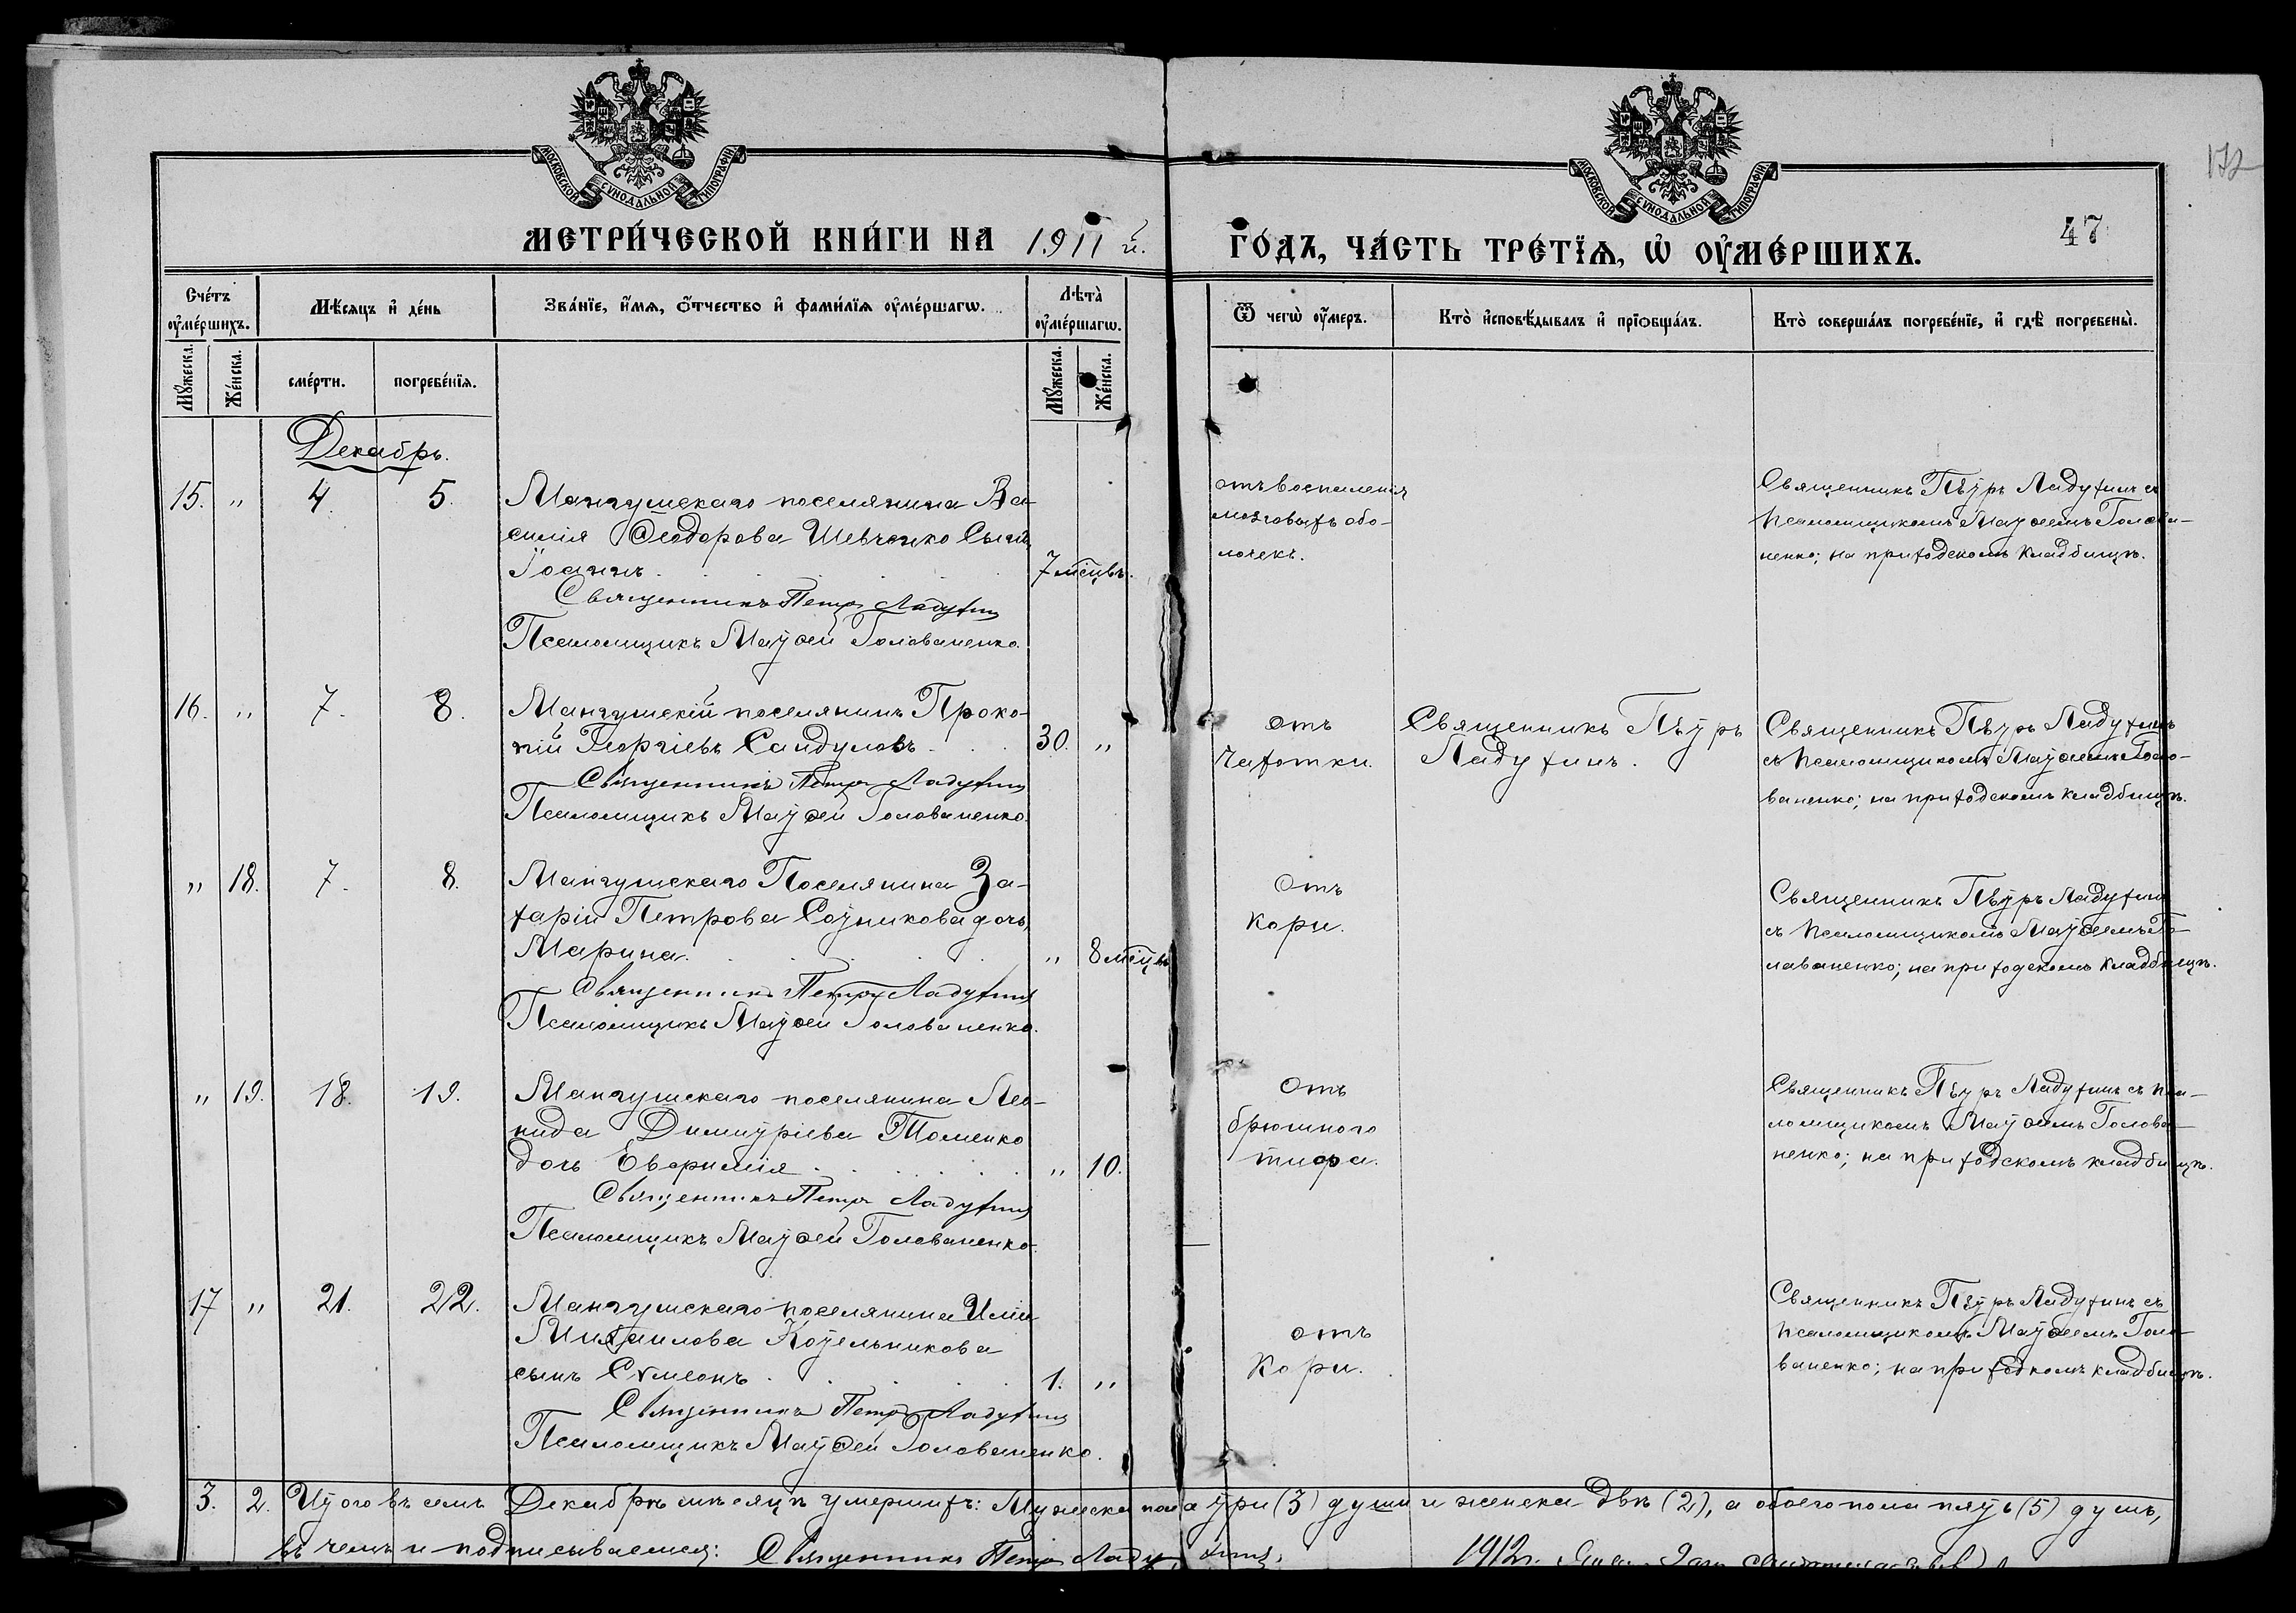 МОСКОВСКОЙ СѴНОДАЛЬНОЙ ТИПОГРАФІИ
МОСКОВСКОЙ СѴНОДАЛЬНОЙ ТИПОГРАФІИ
172
47
МЕТРИ́ЧЕСКОЙ КНИ́ГИ НА 1911 й. ГО́ДЪ, ЧА́СТЬ ТРЕ́ТЇѦ, Ѡ҆ ОУ҆МЕ́РШИХЪ.
Сче́тъ оу҆ме́ршихъ.
Мѣ́сяцъ и҆ де́нь
Зва́нїе, и҆́мя, о҆́тчество и҆ фами́лїя оу҆ме́ршагѡ.
Лѣта̀ оу҆ме́ршагѡ.
Ѿ чегѡ̀ оу҆́меръ.
Кто̀ и҆сповѣ́дывалъ и҆ прїѻбща́лъ.
Кто̀ соверша́лъ погребе́нїе, и҆ гдѣ̀ погребены̀.
Мꙋ́жеска.
Же́нска.
сме́рти.
погребе́нїя.
Мꙋ́жеска.
Же́нска.
Декабрь.
15. " 4. 5.
Мангушскаго поселянина Ва-
силія Ѳеодорова Шевченко сынъ
Іоаннъ. 7 мѣсцвъ.
Священникъ Петръ Ладухинъ
Псаломщикъ Матѳей Голованенко.
отъ воспаленія
мозговыхъ обо-
лочекъ.
Священникъ Петръ Ладухинъ съ
псаломщикомъ Матѳеемъ Голова-
ненко; на приходскомъ кладбищѣ.
16. " 7. 8.
Мангушскій поселянинъ Проко-
пій Георгіевъ Сандуловъ. 30. "
Священникъ Петръ Ладухинъ
Псаломщикъ Матѳей Голованенко.
отъ
чахотки.
Священникъ Петръ
Ладухинъ.
Священникъ Петръ Ладухинъ
съ псаломщикомъ Матѳеемъ Голо-
ваненко; на приходскомъ кладбищѣ.
" 18. 7. 8.
Мангушскаго Поселянина За-
харіи Петрова Сотникова дочь
Марина. " 8 мѣсцвъ
Священникъ Петръ Ладухинъ
Псаломщикъ Матѳей Голованенко.
Отъ
кори.
Священникъ Петръ Ладухинъ
съ псаломщикомъ Матѳеемъ Го-
лованенко; на приходскомъ кладбищѣ.
" 19. 18. 19.
Мангушскаго поселянина Лео-
нида Димитріева Томенко
дочь Евѳимія. " 10.
Священникъ Петръ Ладухинъ
Псаломщикъ Матѳей Голованенко.
Отъ
брюшного
тифа.
Священникъ Петръ Ладухинъ съ пса-
ломщикомъ Матѳеемъ Голова-
ненко; на приходскомъ кладбищѣ.
17 " 21. 22.
Мангушскаго поселянина Иліи
Михаилова Котельникова
сынъ Сѵмеонъ. 1. "
Священникъ Петръ Ладухинъ
Псаломщикъ Матѳей Голованенко.
отъ
кори.
Священникъ Петръ Ладухинъ съ
псаломщикомъ Матѳеемъ Голо-
ваненко; на приходскомъ кладбищѣ.
3. 2. Итого въ семъ Декабрѣ мѣсяцѣ умершихъ: Мужеска пола три (3) души и женска двѣ (2), а обоего пола пять (5) душъ,
въ чемъ и подписываемся: Священникъ Петръ Ладухинъ. 1912 г.